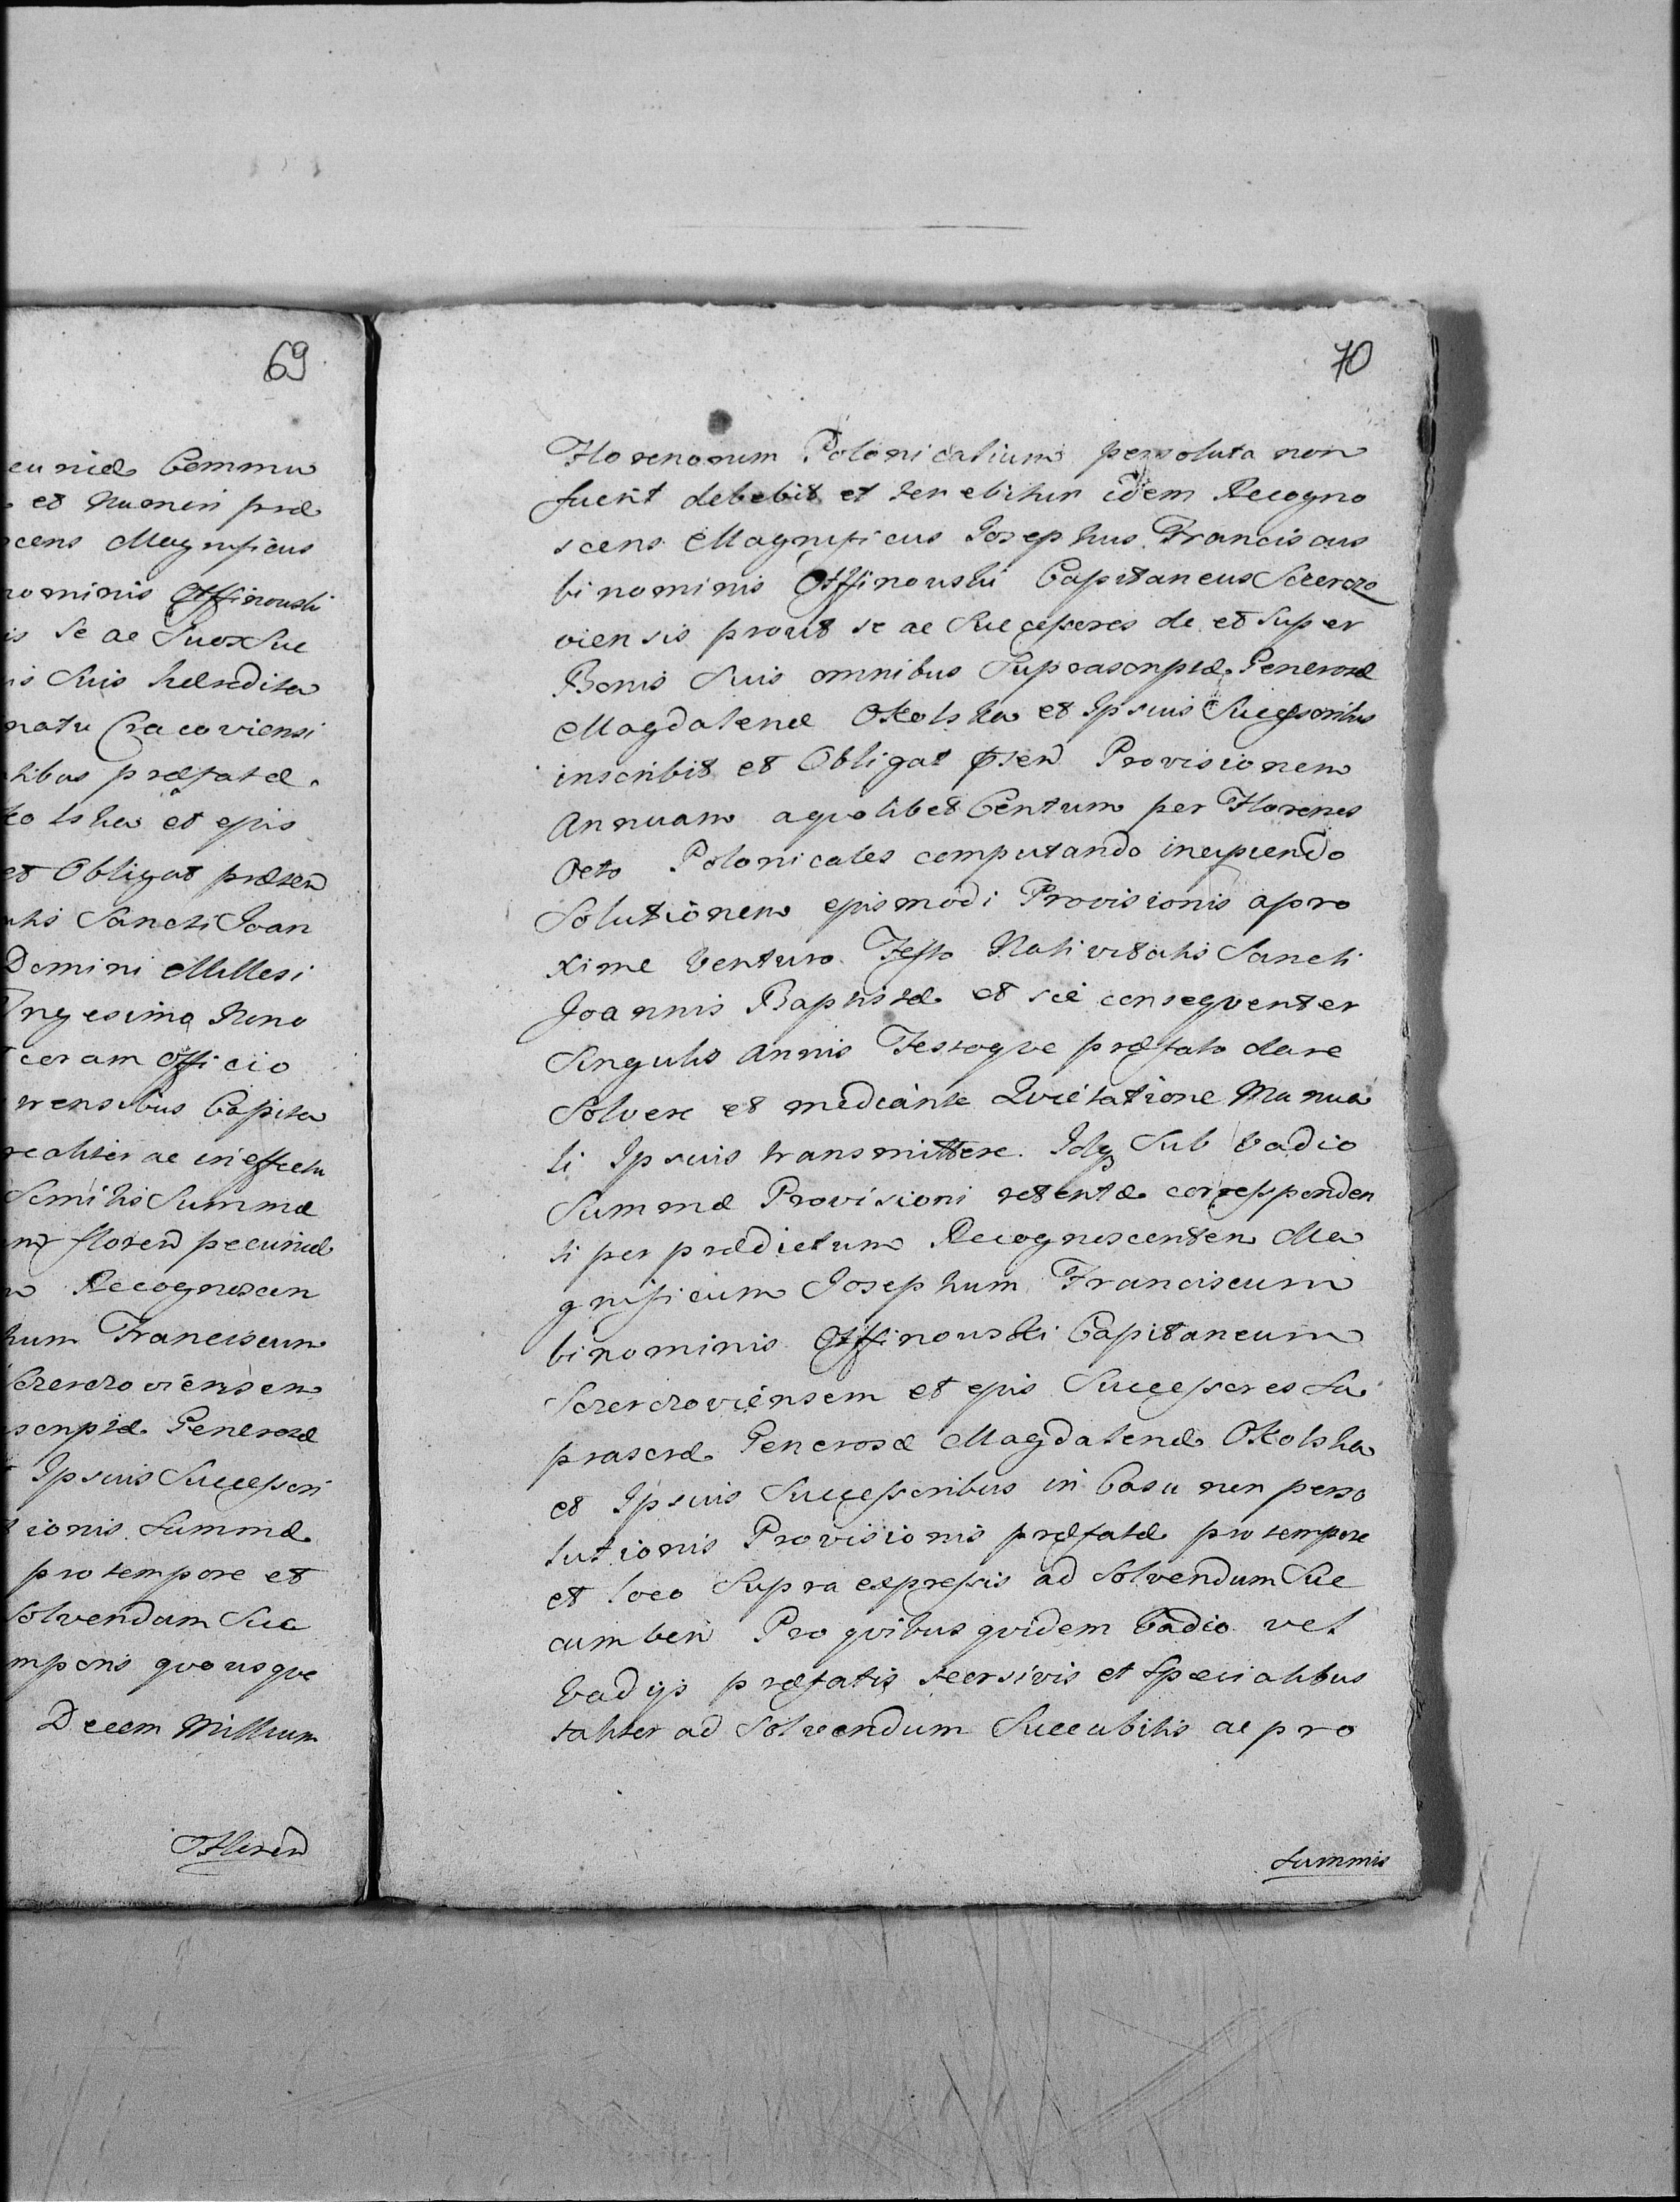 69
euniæ Commu
et Numeri præ
cens Magnificus
nominis Ossinouski
is se ac Suos Suc
is Suis hæredita
natu Cracoviensi
tibus præfatæ
kolska et ejus
et Obligat præsen
atis Sancti Joan
Domini Millesi
Trigesimo Nono
coram Officio
wensibus Capita
realiter ac in effectu
Semilis Summæ
floren pecuniæ
Recognoscen
hum Franciscum
Screrczoviensem
scriptæ Generosæ
Ipsius Successori
tionis Summæ
pro tempore et
Solvendam Suc
mporis quousque
Decem Millium
Floren
70
Florenorum Polonicalium persoluta non
fuerit debebit et tenebitur idem Recogno
scens Magnificus Josephus Franciscus
binominis Ossinouski Capitaneus Screrczo
viensis prout se ac Successores de et super
Bonis Suis omnibus Suprascriptæ Generosæ
Magdalenæ Okolska et Ipsius Successoribus
inscribit et Obligat Provisionem
Annuam a quolibet Centum per Florenos
Octo Polonicales computando incipiendo
Solutionem ejusmodi Provisionis a pro
xime Venturo Festo Nativitatis Sancti
Joannis Baptistæ et sic consequenter
Singulis Annis Festoque præfato dare
Solvere et mediante Quietatione Manua
li Ipsius transmittere. Idq Sub Vadio
Summæ Provisioni retentæ corresponden
ti per prædictum Recognoscentem Ma
gnificum Josephum Franciscum
binominis Ossinouski Capitaneum
Screrczoviensem et ejus Successores Su
prascræ Generosæ Magdalenæ Okolska
et Ipsius Successoribus in Casu non perso
lutionis Provisionis præfatæ pro tempore
et loco Supra expressis ad Solvendum Suc
cumben Pro quibus quidem Vadio vel
Vadijs præfatis recrsivis et Specialibus
taliter ad Solvendum Succubitis ac pro
Summis